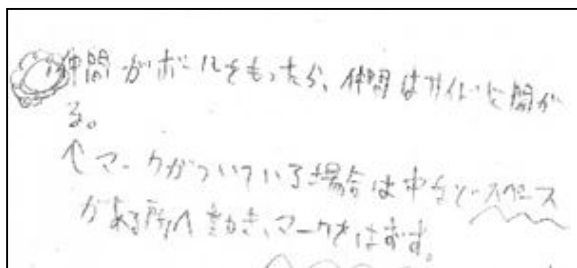 仲間がボールをもったら、仲間は外側に開が
る。
↑マークがついている場合は中など、スペース
がある所へ動き、マークをはずす。